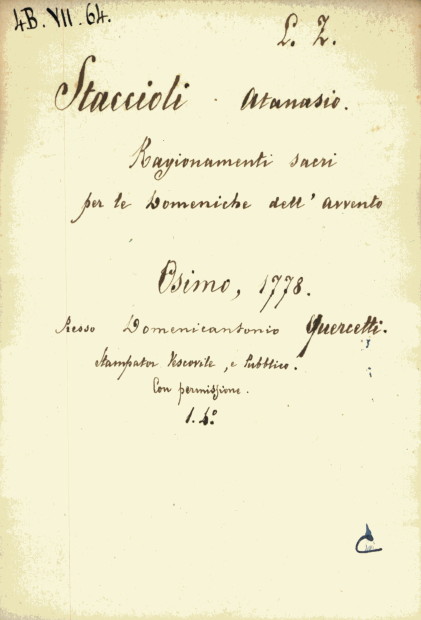 4B. VII. 64.
L. Z.
Staccioli . Atanasio.
Ragionamenti sacri
per le Domeniche dell' Avvento
Osimo, 1778.
Presso Domenicantonio Quercetti.
Stampator Vescovile, e Pubblico.
Con permissione.
1. 4.º